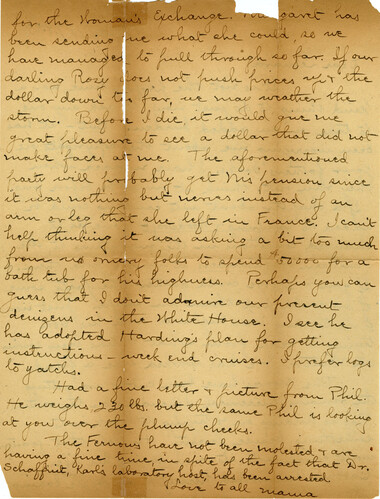 for the Woman's Exchange. Margaret has
been sending me what she could so we
have managed to pull through so far. If our
darling Rosy does not push prices up & the
dollar down too far, we may weather the
storm. Before I die, it would give me
great pleasure to see a dollar that did not
make faces at me. The aforementioned
party will probably get his pension since
it was nothing but nerves instead of an
arm or leg that she left in France. I can't
help thinking it was asking a bit too much
from us ornery folks to spend $50000 for a
bath tub for his highness. Perhaps you can
guess that I don't admire our present
denizens in the White House. I see he
has adopted Harding's plan for getting
instructions - week end cruises. I prefer logs
to yachts.
Had a fine letter & picture from Phil.
He weighs 230 lbs. but the same Phil is looking
at you over the plump cheeks.
The have not been molested & are
having a fine time in spite of the fact that Dr.
Karl's laboratory host, has been arrested.
Love to all mama